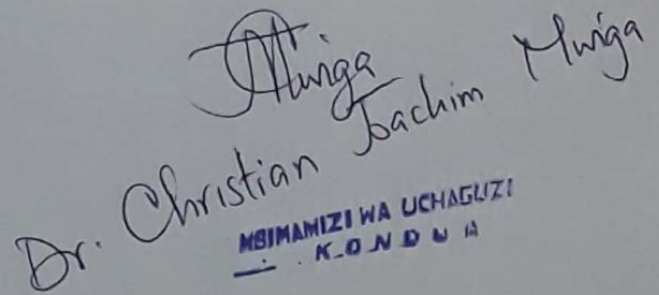 Mwiga
Dr. Christian Joachim Mwiga
MSIMAMIZI WA UCHAGUZI
KONDOA